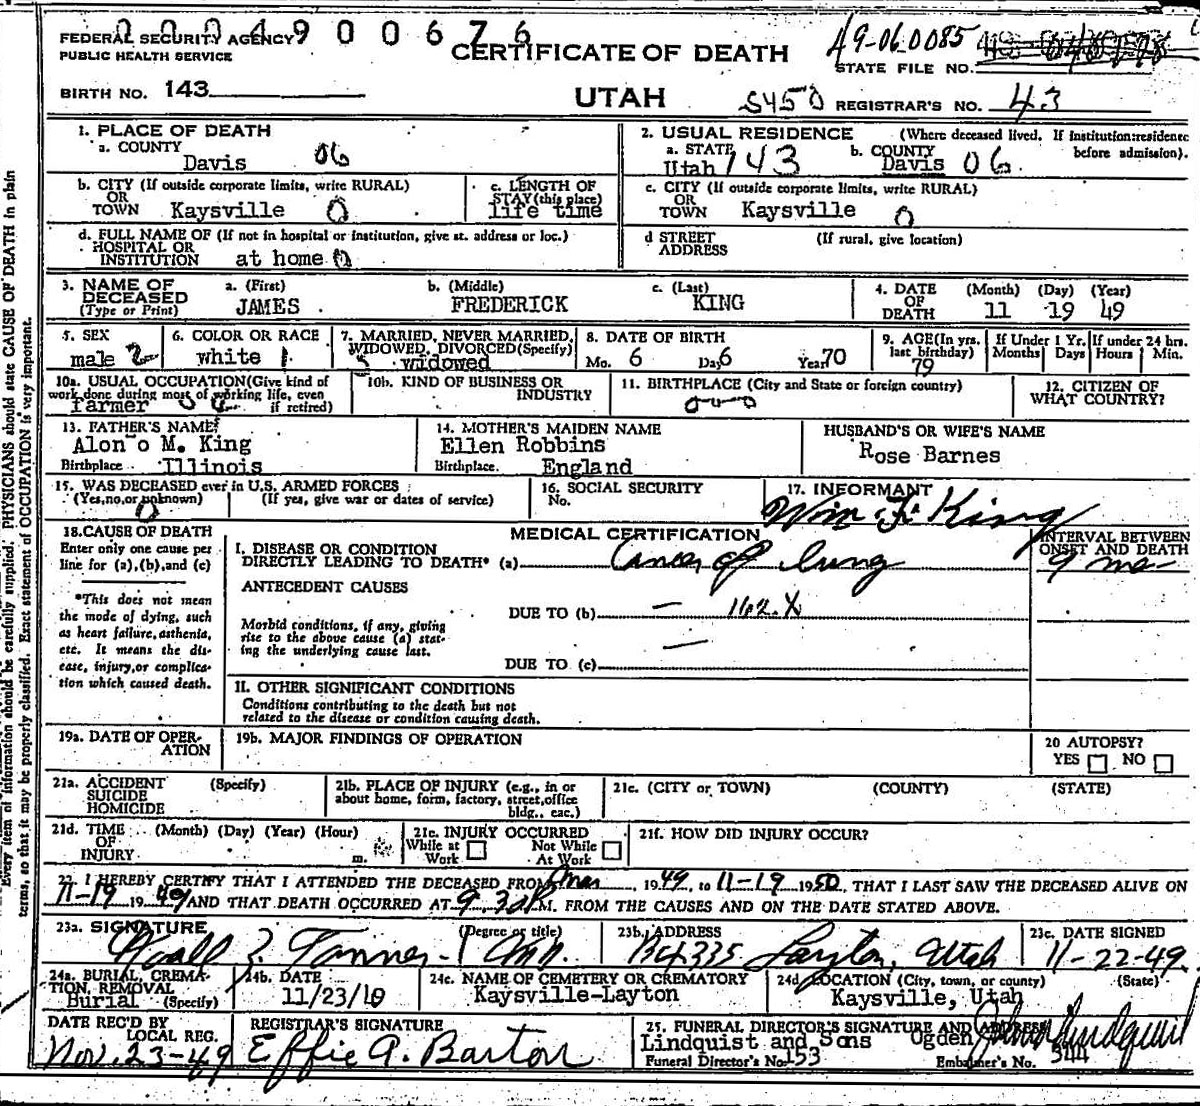 0 0 0 4 9 0 0 6 7 6
FEDERAL SECURITY AGENCY
PUBLIC HEALTH SERVICE
CERTIFICATE OF DEATH
49-06.0085
STATE FILE NO.
BIRTH NO. 143
UTAH
S450 REGISTRAR'S NO. 43
1. PLACE OF DEATH
a. COUNTY
Davis 06
2. USUAL RESIDENCE (Where deceased lived. If institution: residence before admission).
a. STATE
Utah 143
b. COUNTY
Davis 06
b. CITY (If outside corporate limits, write RURAL)
OR
TOWN Kaysville 0
c. LENGTH OF
STAY (this place)
life time
c. CITY (If outside corporate limits, write RURAL)
OR
TOWN Kaysville 0
d. FULL NAME OF (If not in hospital or institution, give st. address or loc.)
HOSPITAL OR
INSTITUTION at home 0
d STREET (If rural, give location)
ADDRESS
3. NAME OF
DECEASED
(Type or Print)
a. (First)
JAMES
b. (Middle)
FREDERICK
c. (Last)
KING
4. DATE
OF
DEATH
(Month) (Day) (Year)
11 19 49
5. SEX
male 2
6. COLOR OR RACE
white 1
7. MARRIED, NEVER MARRIED,
WIDOWED, DIVORCED (Specify)
widowed
8. DATE OF BIRTH
Mo. 6 Day 6 Year 70
9. AGE (In yrs.
last birthday)
79
If Under 1 Yr.
Months Days
If under 24 hrs.
Hours Min.
10a. USUAL OCCUPATION (Give kind of
work done during most of working life, even
if retired)
farmer
10b. KIND OF BUSINESS OR
INDUSTRY
11. BIRTHPLACE (City and State or foreign country)
12. CITIZEN OF
WHAT COUNTRY?
13. FATHER'S NAME
Alon o M. King
Birthplace Illinois
14. MOTHER'S MAIDEN NAME
Ellen Robbins
Birthplace England
HUSBAND'S OR WIFE'S NAME
Rose Barnes
15. WAS DECEASED ever in U.S. ARMED FORCES
(Yes, no, or unknown) (If yes, give war or dates of service)
0
16. SOCIAL SECURITY
No.
17. INFORMANT
Wm. F. King
18. CAUSE OF DEATH
Enter only one cause per
line for (a), (b), and (c)
*This does not mean
the mode of dying, such
as heart failure, asthenia,
etc. It means the dis-
ease, injury, or complica-
tion which caused death.
MEDICAL CERTIFICATION
I. DISEASE OR CONDITION
DIRECTLY LEADING TO DEATH* (a) Cancer of lung
INTERVAL BETWEEN
ONSET AND DEATH
9 mo
ANTECEDENT CAUSES
DUE TO (b) — 162.X
Morbid conditions, if any, giving
rise to the above cause (a) stat-
ing the underlying cause last.
DUE TO (c) —
II. OTHER SIGNIFICANT CONDITIONS
Conditions contributing to the death but not
related to the disease or condition causing death.
19a. DATE OF OPER-
ATION
19b. MAJOR FINDINGS OF OPERATION
20 AUTOPSY?
YES NO
21a. ACCIDENT (Specify)
SUICIDE
HOMICIDE
21b. PLACE OF INJURY (e.g., in or
about home, form, factory, street, office
bldg., eac.)
21c. (CITY or TOWN) (COUNTY) (STATE)
21d. TIME (Month) (Day) (Year) (Hour)
OF
INJURY m.
21e. INJURY OCCURRED
While at Work Not While At Work
21f. HOW DID INJURY OCCUR?
22. I HEREBY CERTIFY THAT I ATTENDED THE DECEASED FROM Mar, 1949, to 11-19 1950, THAT I LAST SAW THE DECEASED ALIVE ON
11-19 1949 AND THAT DEATH OCCURRED AT 9:30 P.M. FROM THE CAUSES AND ON THE DATE STATED ABOVE.
23a. SIGNATURE (Degree or title)
Noall Z. Tanner M.D.
23b. ADDRESS
Bx 335 Layton, Utah
23c. DATE SIGNED
11-22-49
24a. BURIAL, CREMA-
TION, REMOVAL
Burial (Specify)
24b. DATE
11/23/10
24c. NAME OF CEMETERY OR CREMATORY
Kaysville-Layton
24d LOCATION (City, town, or county) (State)
Kaysville, Utah
DATE REC'D BY
LOCAL REG.
Nov. 23-49
REGISTRAR'S SIGNATURE
Effie A. Barton
25. FUNERAL DIRECTOR'S SIGNATURE AND ADDRESS
Lindquist and Sons Ogden
Funeral Director's No. 153 Embalmer's No.
Every item of information should be carefully supplied. PHYSICIANS should state CAUSE OF DEATH in plain
terms, so that it may be properly classified. Exact statement of OCCUPATION is very important.